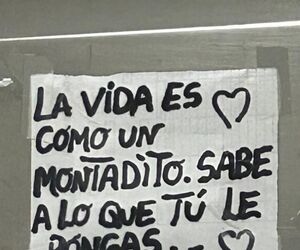 LA VIDA ES
COMO UN
MONTADITO. SABE
A LO QUE TÚ LE
PONGAS...